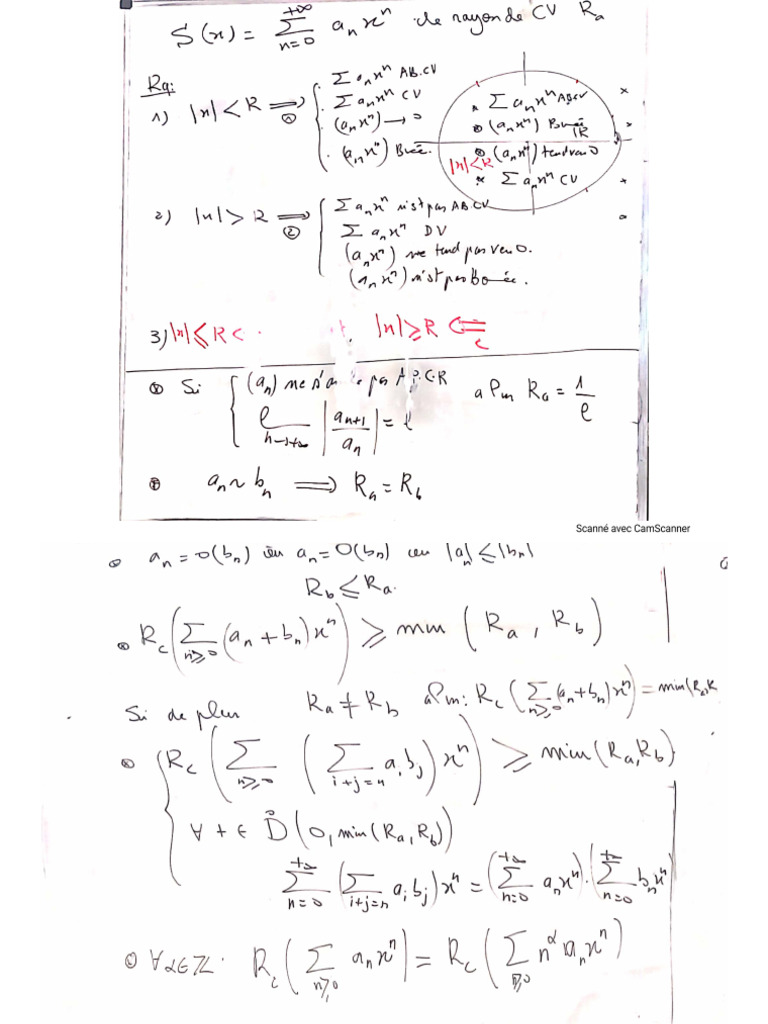 S(x) = \sum_{n=0}^{+\infty} a_n x^n de rayon de CV R_a
Rq:
1) |x| < R \Longrightarrow ①
∑ a_n x^n AB.CV
∑ a_n x^n CV
(a_n x^n) → 0
(a_n x^n) Bornée.
∑ a_n x^n ABCV
(a_n x^n) Bornée
IR
|x|<R
(a_n x^n) tend vers 0
∑ a_n x^n CV
2) |x| > R \Longrightarrow ②
∑ a_n x^n n'est pas AB.CV
∑ a_n x^n DV
(a_n x^n) ne tend pas vers 0.
(a_n x^n) n'est pas Bornée.
3) |x| ≤ R |x| ≥ R ⟸
Si (a_n) ne pas A.P.C.R aPm R_a = 1/ℓ
n→+∞ |a_{n+1}/a_n| = ℓ
a_n ~ b_n ⟹ R_a = R_b
Scanné avec CamScanner
a_n = o(b_n) ou a_n = O(b_n) ou |a_n| ≤ |b_n|
R_b ≤ R_a.
R_c(∑_{n≥0} (a_n + b_n) x^n) ≥ min (R_a, R_b)
Si de plus R_a ≠ R_b aPm: R_c(∑_{n≥0} (a_n + b_n) x^n) = min(R_a, R
R_c(∑_{n≥0} (∑_{i+j=n} a_i b_j) x^n) ≥ min(R_a, R_b)
∀ t ∈ D̊(0, min(R_a, R_b))
∑_{n=0}^{+∞} (∑_{i+j=n} a_i b_j) x^n = (∑_{n=0}^{+∞} a_n x^n) · (∑_{n=0}^{+∞} b_n x^n
∀α∈ℤ. R_c(∑_{n≥0} a_n x^n) = R_c(∑_{n≥0} n^α a_n x^n)